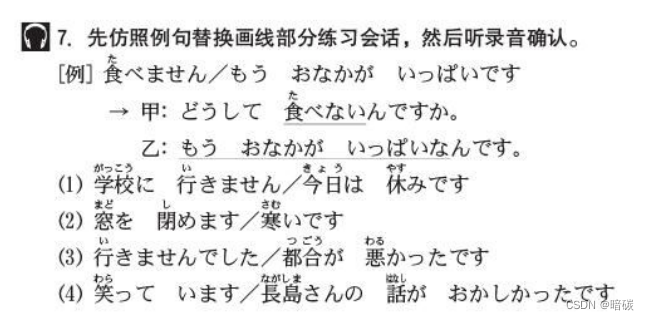 7. 先仿照例句替换画线部分练习会话，然后听录音确认。
[例] 食べません／もう　おなかが　いっぱいです
→ 甲：どうして　食べないんですか。
乙：もう　おなかが　いっぱいなんです。
(1) 学校に　行きません／今日は　休みです
(2) 窓を　閉めます／寒いです
(3) 行きませんでした／都合が　悪かったです
(4) 笑って　います／長島さんの　話が　おかしかったです
CSDN @暗碳